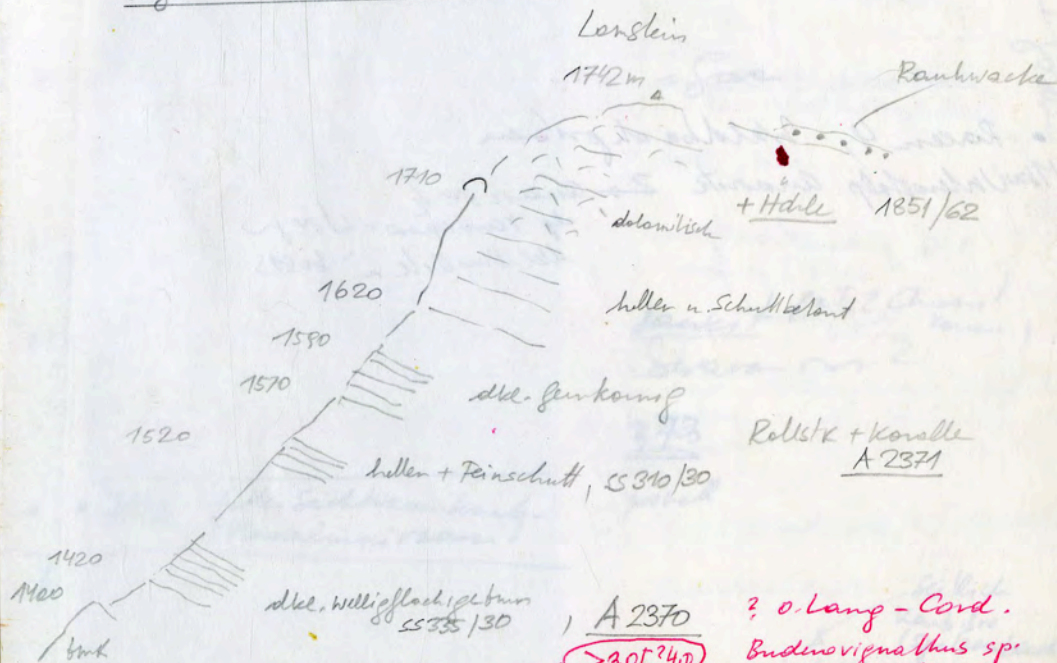 Lonstein
1742m
Rauhwacke
1710
+ Höhle 1851/62
dolomitisch
1620
heller u. Schuttbetont
1590
1570
dkl. feinkörnig
1520
Rollstk + Koralle
A 2371
heller + Feinschutt, SS 310/30
1420
1400
dkl.
SS 335/30
, A 2370
? o. Lang - Cord.
Budurovignathus sp.